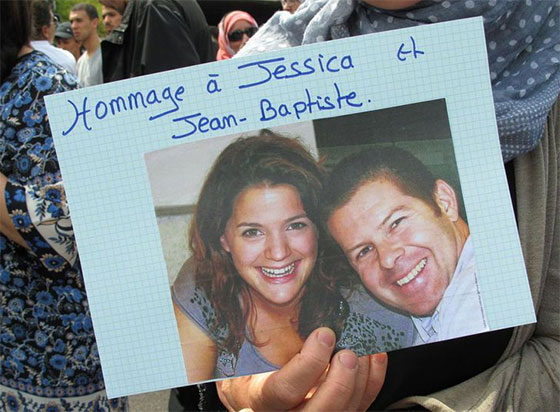 Hommage à Jessica et
Jean-Baptiste.